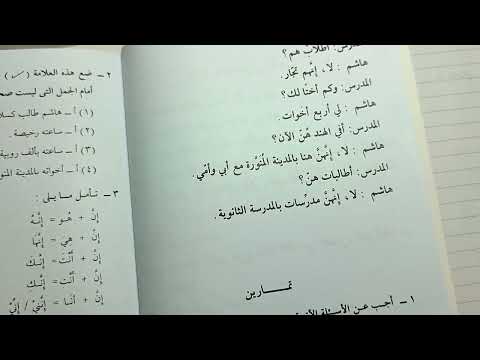 المدرّس: أطلاّب هم؟
هاشم : لا، إنّهم تجّار.
المدرّس: وكم أختا لك؟
هاشم : لي أربع أخوات.
المدرّس: أفي الهند هُنّ الآن؟
هاشم : لا، إنّهنّ هنا بالمدينة المُنوّرة مع أبي وأمّي.
المدرّس: أطالبات هنّ؟
هاشم : لا، إنّهنّ مدرّسات بالمدرسة الثانوية.
تمــارين
١ – أجب عن الأسئلة
٢ – ضع هذه العلامة (✓)
أمام الجمل التي ليست
(١) أ – هاشم طالب
(٢) أ – ساعته رخيصة.
(٣) أ – ساعته بألف روبية
(٤) أ – أخواته بالمدينة
٣ – تأمل ما يلي :
إنّ + هُو = إنَّهُ
إنّ + هِيَ = إنَّهَا
إنّ + أنْتَ = إنَّكَ
إنّ + أنْتِ = إنَّكِ
إنّ + أنَا = إنَّنِيْ / إنِّيْ